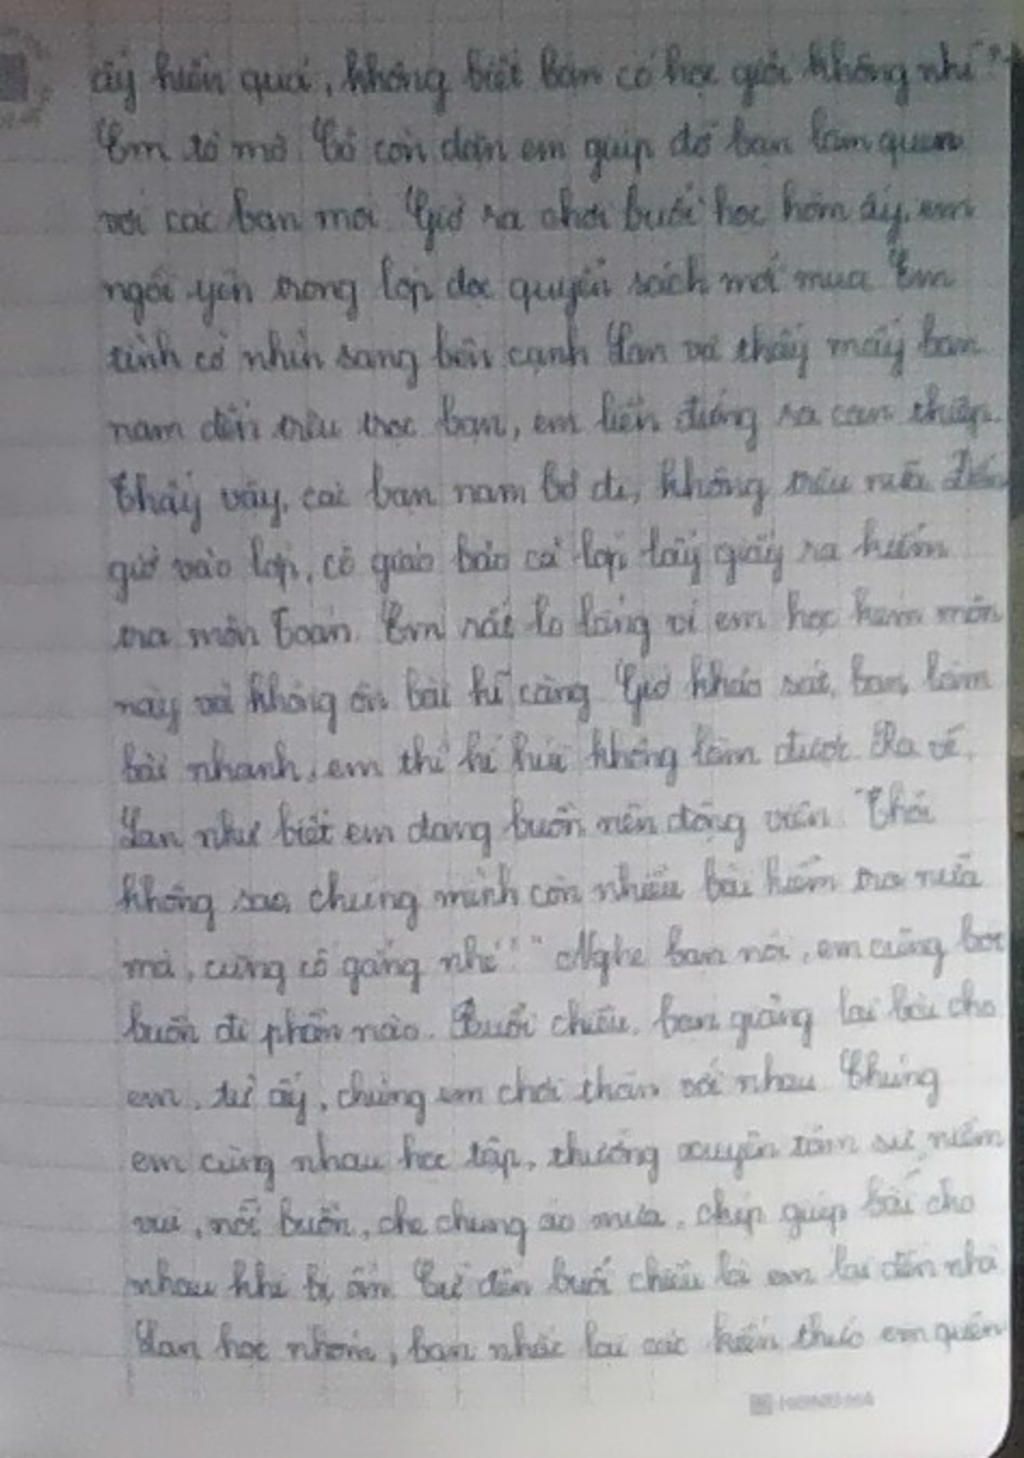 ấy hiền quá, không biết bạn có học giỏi không nhỉ?"
Em tò mò. Cô còn dặn em giúp đỡ bạn làm quen
với các bạn mới. Giờ ra chơi buổi học hôm ấy, em
ngồi yên trong lớp đọc quyển sách mới mua. Em
tình cờ nhìn sang bên cạnh Lan và thấy mấy bạn
nam đến trêu trọc bạn, em liền đứng ra can thiệp.
Thấy vậy, các bạn nam bỏ đi, không trêu nữa. Đến
giờ vào lớp, cô giáo bảo cả lớp lấy giấy ra kiểm
tra môn Toán. Em rất lo lắng vì em học kém môn
này và không ôn bài kĩ càng. Giờ khảo sát, bạn làm
bài nhanh, em thì hí húi không làm được. Ra về,
Lan như biết em đang buồn nên động viên: "Thôi
không sao, chúng mình còn nhiều bài kiểm tra nữa
mà, cùng cố gắng nhé!" Nghe bạn nói, em cũng bớt
buồn đi phần nào. Buổi chiều, bạn giảng lại bài cho
em, từ ấy, chúng em chơi thân với nhau. Chúng
em cùng nhau học tập, thường xuyên tâm sự niềm
vui, nỗi buồn, che chung áo mưa, chép giúp bài cho
nhau khi bị ốm. Cứ đến buổi chiều là em lại đến nhà
Lan học nhóm, bạn nhắc lại các kiến thức em quên